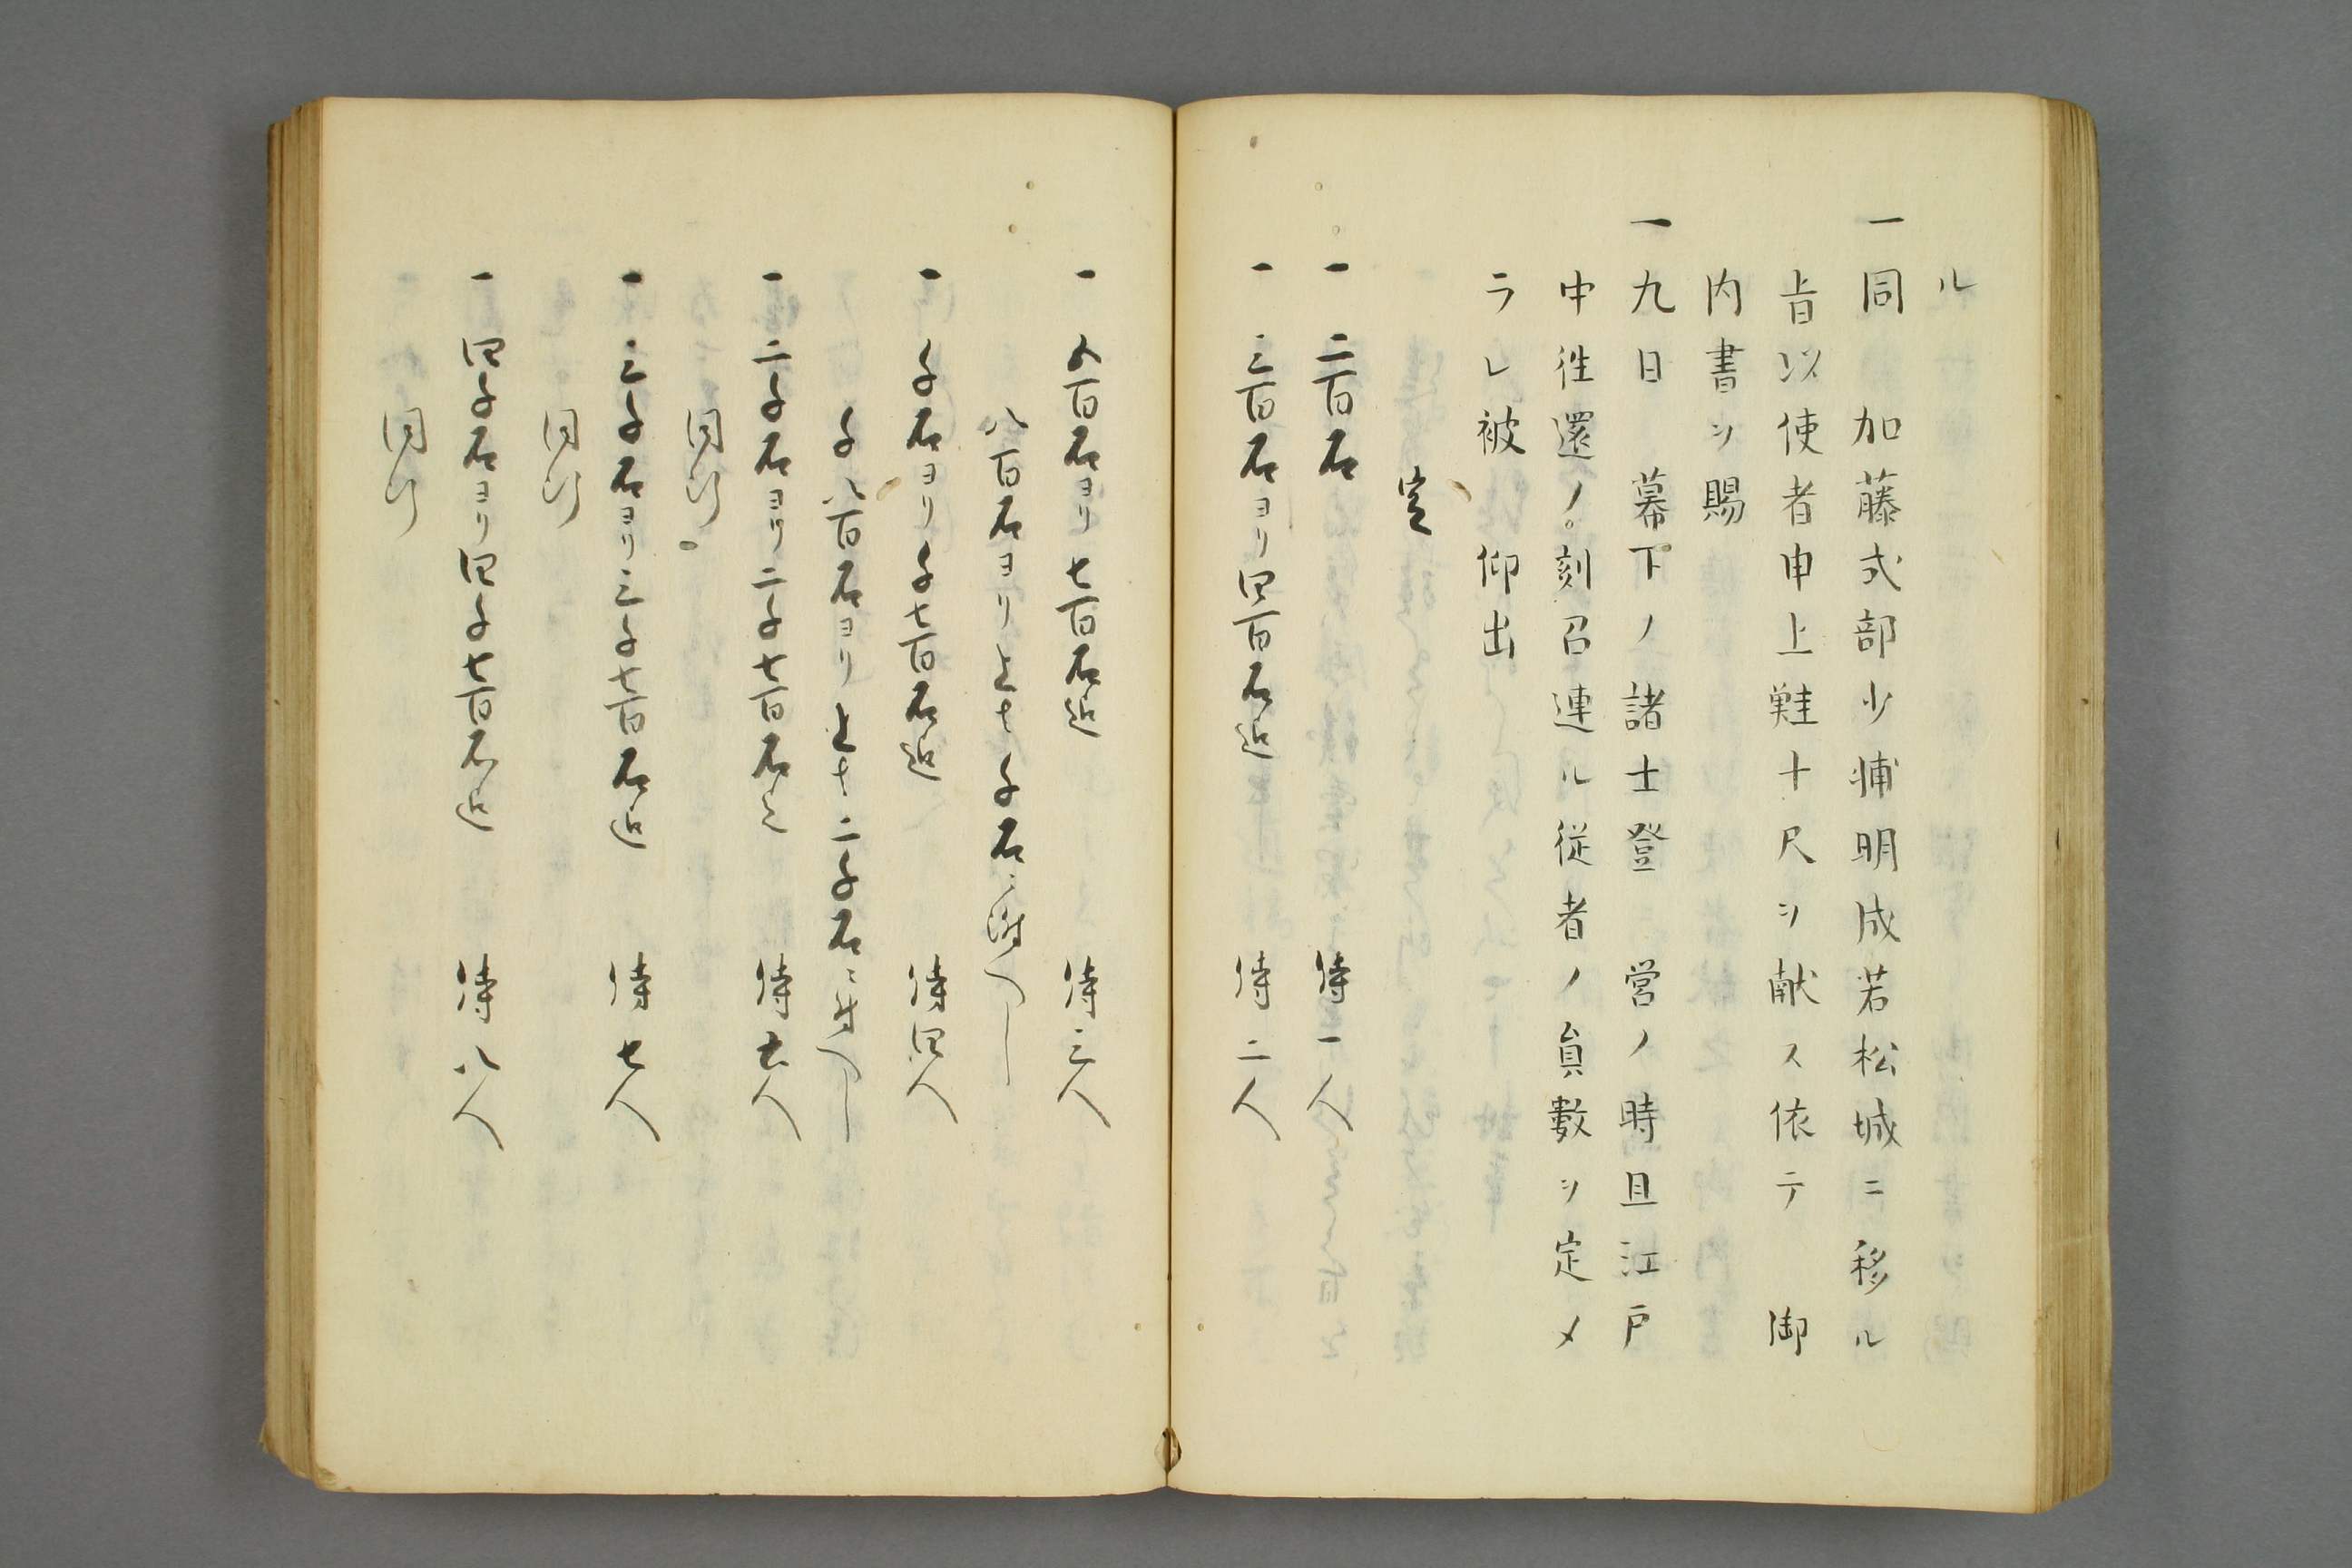 ル
一同 加藤式部少輔明成若松城ニ移ル
旨以使者申上鮭十尺ヲ献ス依テ 御
内書ヲ賜
一九日 幕下ノ諸士登 営ノ時且江戸
中徃還ノ刻召連ル従者ノ員數ヲ定メ
ラレ被 仰出
定
一 二百石 侍一人
一 三百石ヨリ四百石迄 侍二人
一 五百石ヨリ七百石迄 侍三人
八百石ヨリ上ハ千石ニ附へし
一 千石ヨリ千七百石迄 侍四人
千八百石ヨリ上ハ二千石ニ附へし
一 二千石ヨリ二千七百石迄 侍六人
同断
一 三千石ヨリ三千七百石迄 侍七人
同断
一 四千石ヨリ四千七百石迄 侍八人
同断